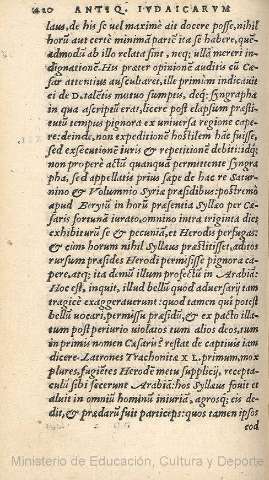 420 ANTIQ. IVDAICARVM
laus, de his se uel maximè ait docere posse, nihil
horū aut certè minimā partē ita se habere, quē-
admodū ab illo relata sint, neq; ullā mereri in-
dignationē. His præter opinionē auditis cū Cæ
sar attentius auscultaret, ille primùm indicauit
ei de talētis mutuo sumptis, deq; syngrapha
in qua ascriptū erat, licere post elapsum præsti-
tutū tempus pignora ex uniuersa regione cape-
re: deinde, non expeditionē hostilem hāc fuisse,
sed exsecutionē iuris & repetitionē debiti: idq;
non properè actū quanquā permittente syngra
pha, sed appellatis prius sæpe de hac re Satur-
nino & Volumnio Syriæ præsidibus: postremò
apud Berytū in horū præsentia Syllæo per Cæ-
saris fortunā iurato, omnino intra triginta dies
exhibiturū se & pecuniā, et Herodis perfugas:
& cùm horum nihil Syllæus præstitisset, aditos
rursum præsides Herodi permisisse pignora ca-
pere, atq; ita demū illum profectū in Arabiā.
Hoc est, inquit, illud bellū quod aduersarij tam
tragicè exaggerauerunt: quod tamen qui potest
bellū uocari, permissu præsidū, & ex pacto illa-
tum post periurio uiolatos tum alios deos, tum
in primis nomen Cæsaris? restat de captiuis iam
dicere. Latrones Trachonitæ XL. primum, mox
plures, fugiētes Herodē metu supplicij, recepta-
culū sibi fecerunt Arabiā: hos Syllæus fouit et
aluit in omniū hominū iniuriā, agrosq; eis de
dit, & prædarū fuit particeps: quos tamen ipsos
eod
Ministerio de Educación, Cultura y Deporte